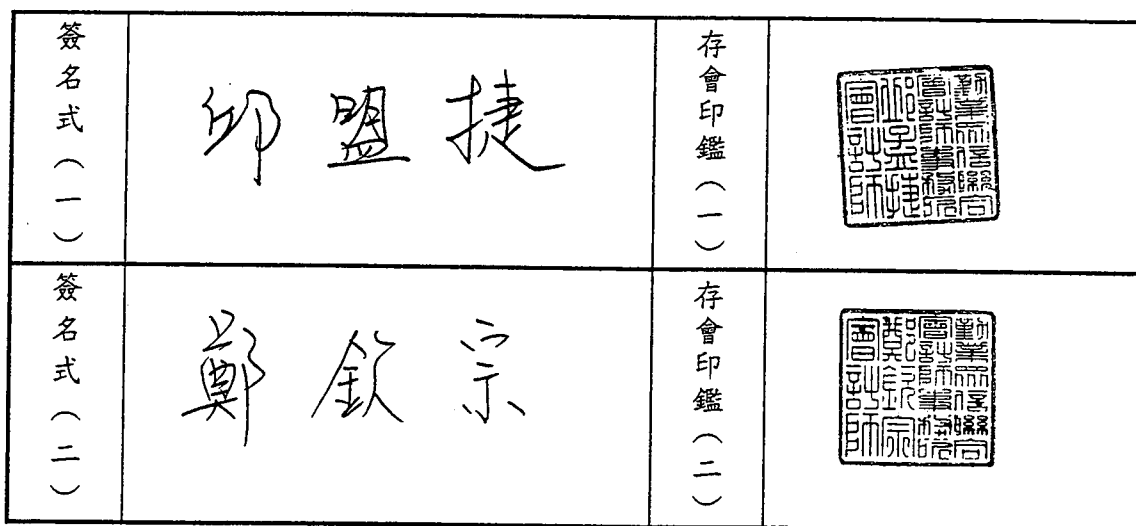 簽名式（一）
邱盟捷
存會印鑑（一）
勤業眾信聯合
會計師事務所
邱盟捷
會計師
簽名式（二）
鄭欽宗
存會印鑑（二）
勤業眾信聯合
會計師事務所
鄭欽宗
會計師